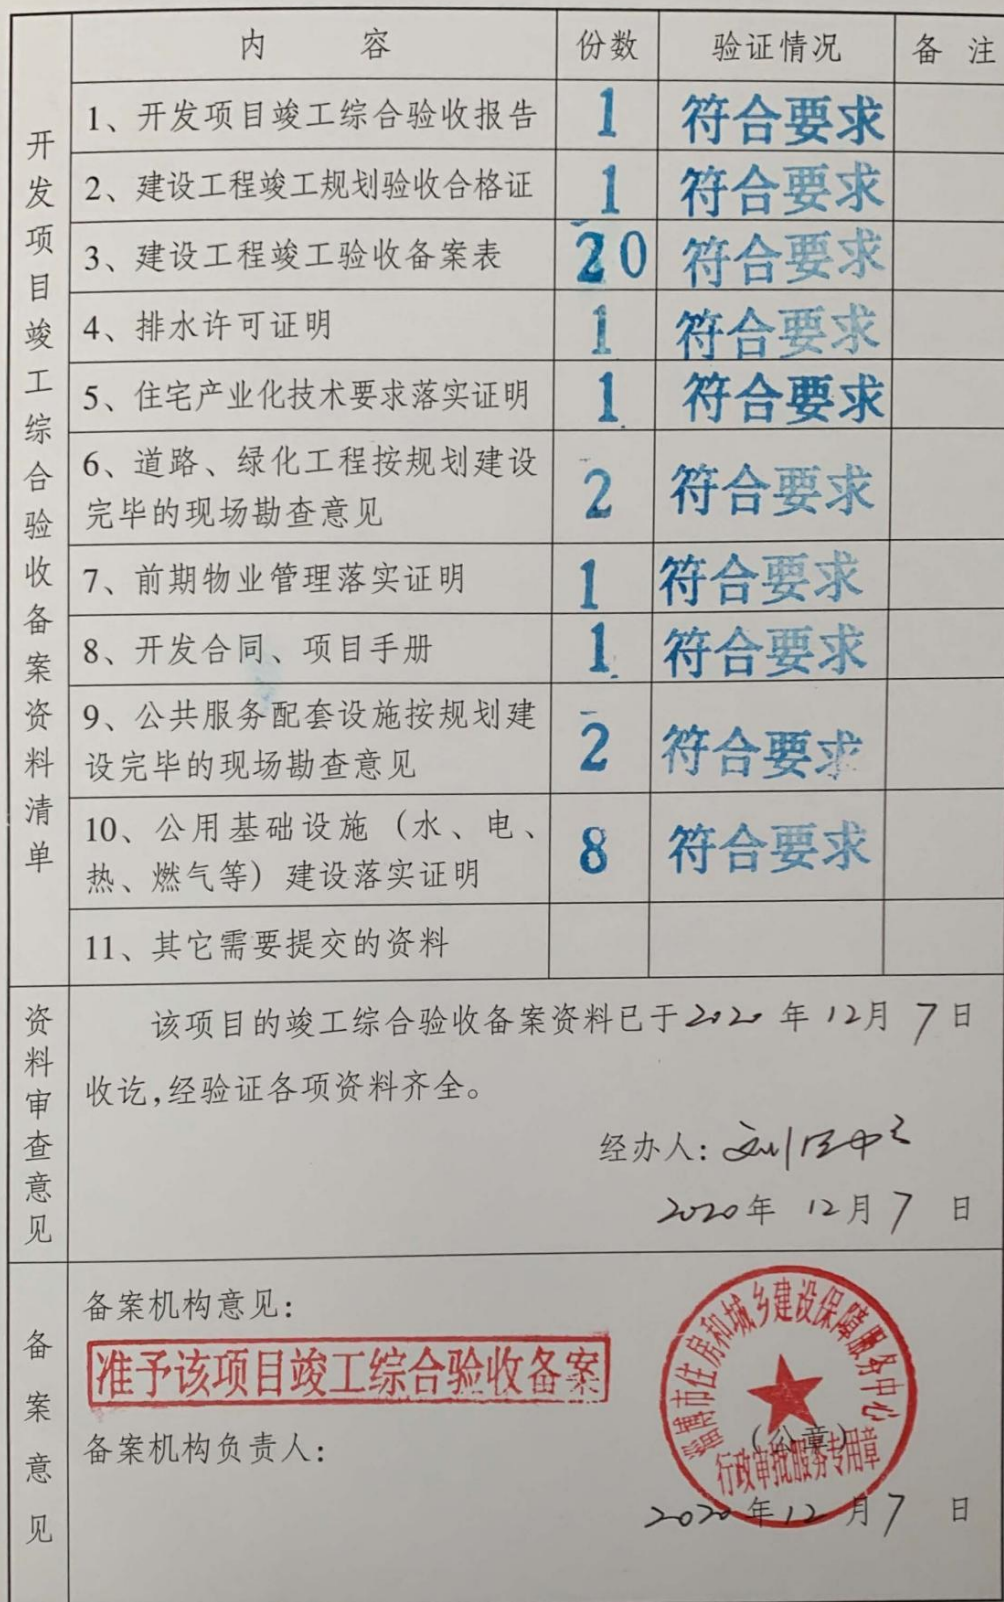 内 容 份数 验证情况 备注
开发项目竣工综合验收备案资料清单
1、开发项目竣工综合验收报告 1 符合要求
2、建设工程竣工规划验收合格证 1 符合要求
3、建设工程竣工验收备案表 20 符合要求
4、排水许可证明 1 符合要求
5、住宅产业化技术要求落实证明 1 符合要求
6、道路、绿化工程按规划建设
完毕的现场勘查意见 2 符合要求
7、前期物业管理落实证明 1 符合要求
8、开发合同、项目手册 1 符合要求
9、公共服务配套设施按规划建
设完毕的现场勘查意见 2 符合要求
10、公用基础设施（水、电、
热、燃气等）建设落实证明 8 符合要求
11、其它需要提交的资料
资料审查意见
该项目的竣工综合验收备案资料已于2020年12月7日
收讫,经验证各项资料齐全。
经办人:
2020年12月7日
备案意见
备案机构意见:
准予该项目竣工综合验收备案
备案机构负责人:
淄博市住房和城乡建设保障服务中心
（公章）
行政审批服务专用章
2020年12月7日